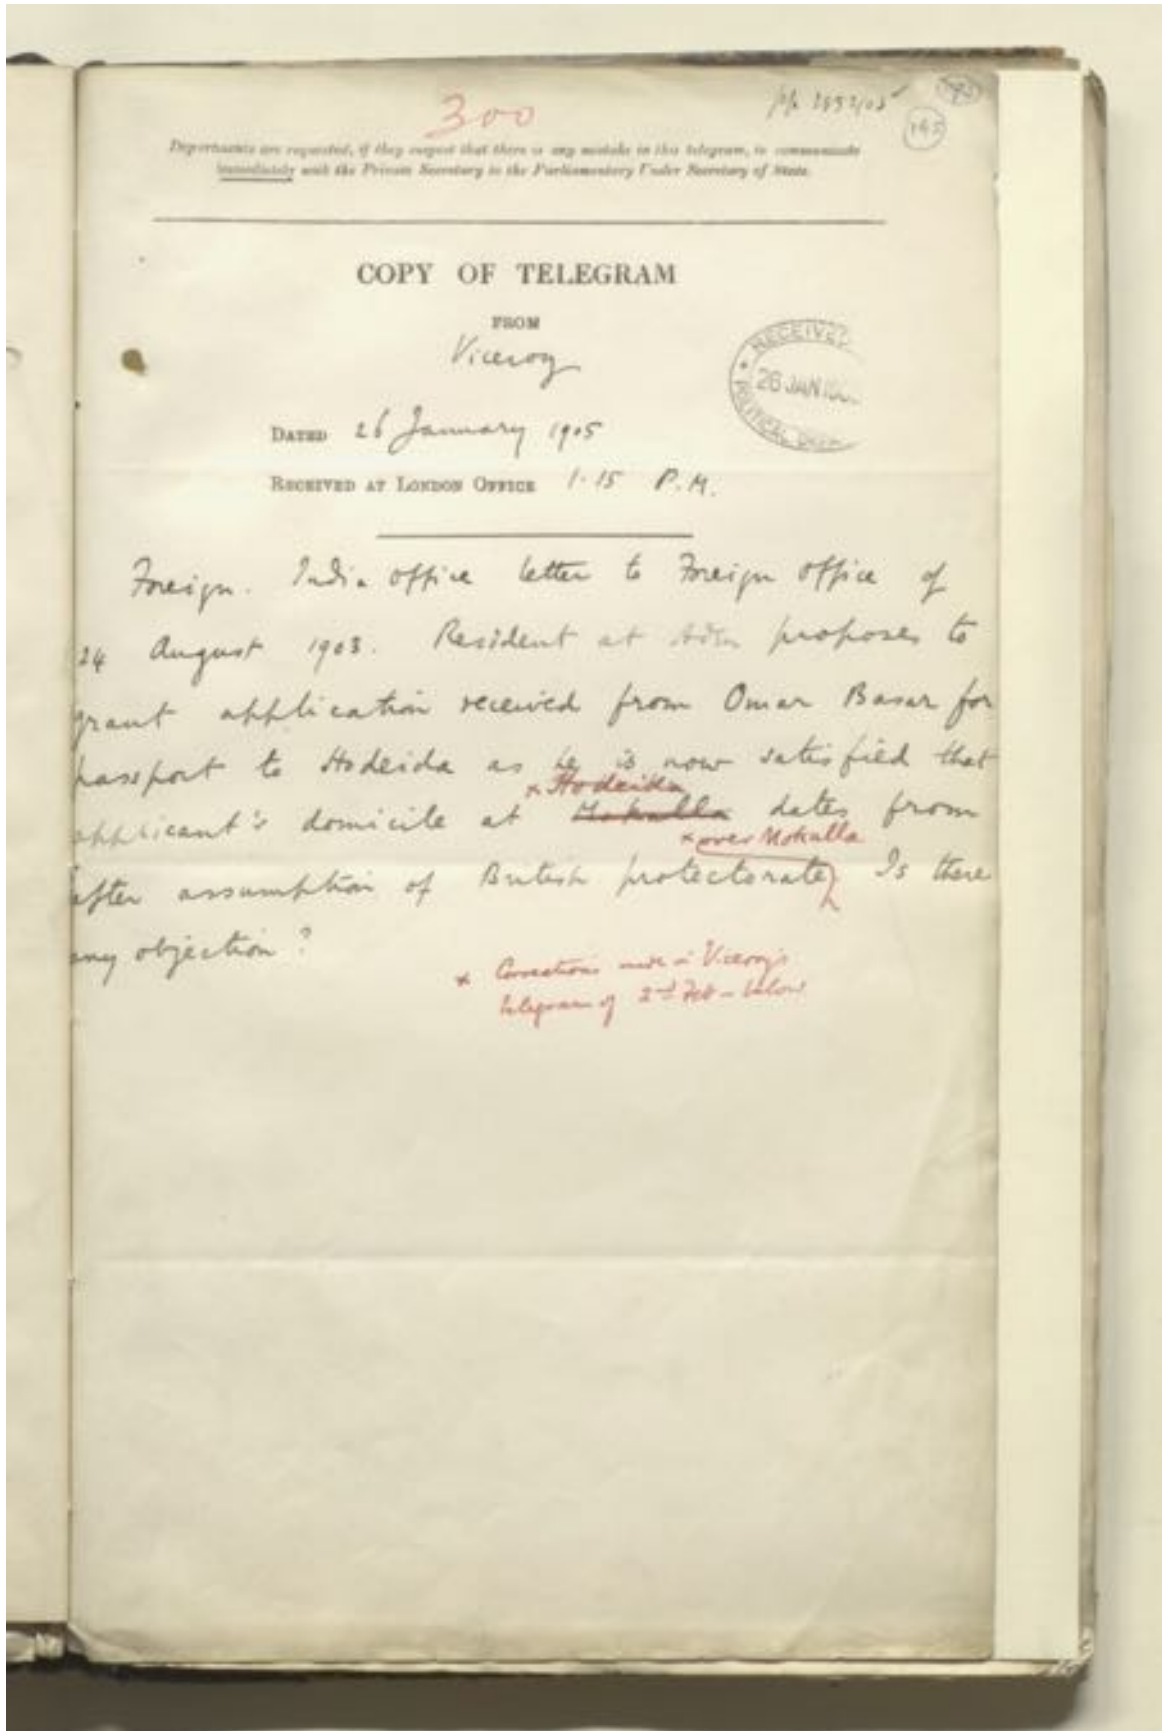 300
195
Departments are requested, if they suspect that there is any mistake in this telegram, to communicate
immediately with the Private Secretary to the Parliamentary Under Secretary of State.
COPY OF TELEGRAM
FROM
Viceroy
RECEIVED
26 JAN 190
POLITICAL
DATED 26 January 1905
RECEIVED AT LONDON OFFICE 1.15 P.M.
Foreign. India office letter to Foreign office of
24 August 1903. Resident at Aden proposes to
grant application received from Omar Basar for
passport to Hodeida as he is now satisfied that
x Hodeida
applicant's domicile at Mokalla dates from
x over Mokalla
after assumption of British protectorate Is there
any objection?
x Corrections made in Viceroy's
telegram of 2nd Feb - below